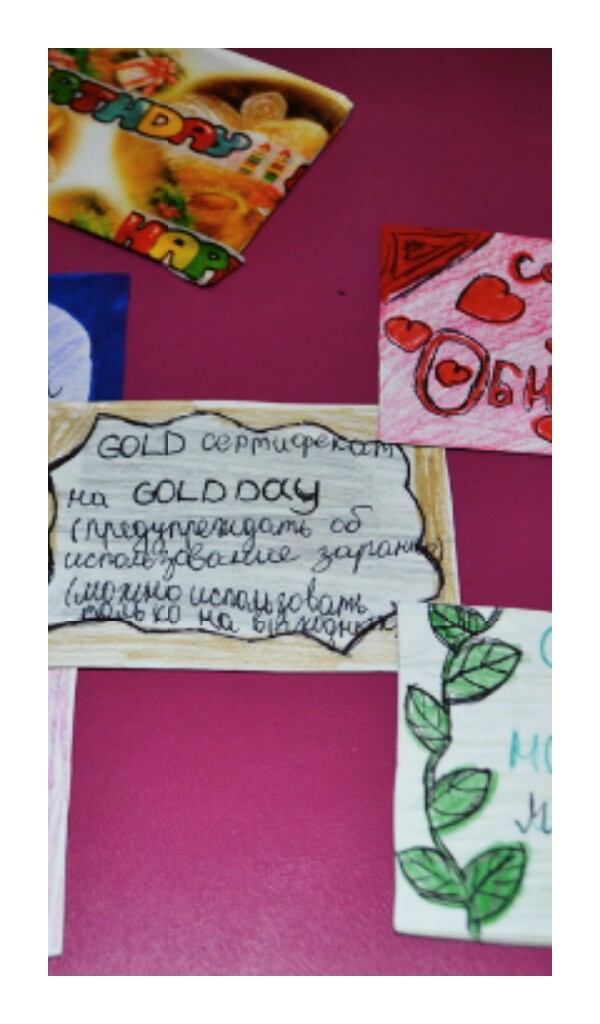 BIRTHDAY
HAP
Се
Обн
GOLD сертификат
на GOLD DAY
(предупреждать об
использование заранее)
(можно использовать
только на выходных)
С
МО
М